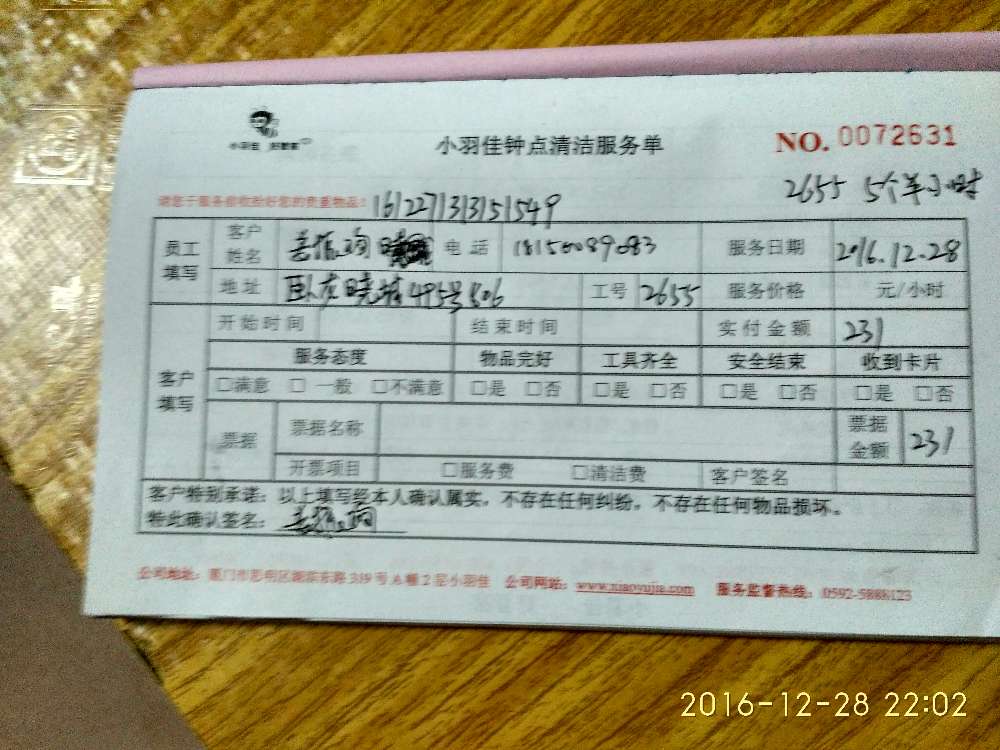 小羽佳
小羽佳钟点清洁服务单
NO. 0072631
2655 5个半小时
请您于服务前收拾好您的贵重物品! 161227131351549
员工填写 客户姓名 电话 18150089083 服务日期 2016.12.28
地址 卧龙晓城495号506 工号 2655 服务价格 元/小时
客户填写 开始时间 结束时间 实付金额 231
服务态度 物品完好 工具齐全 安全结束 收到卡片
□满意 □一般 □不满意 □是 □否 □是 □否 □是 □否 □是 □否
票据 票据名称 票据金额 231
开票项目 □服务费 □清洁费 客户签名
客户特别承诺:以上填写经本人确认属实,不存在任何纠纷,不存在任何物品损坏。
特此确认签名:
公司地址:厦门市思明区湖滨东路319号A幢2层小羽佳 公司网站:www.xiaoyujia.com 服务监督热线:0592-5888123
2016-12-28 22:02